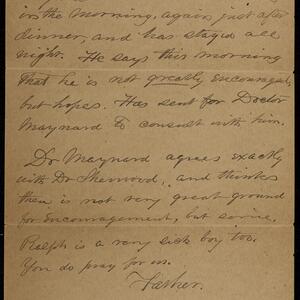 in the morning, again just after
dinner, and has stayed all
night. He says this morning
that he is not greatly encouraged,
but hopes. Has sent for Doctor
Maynard to consult with him.
Dr Maynard agrees exactly
with Dr Sherwood, and thinks
there is not very great ground
for encouragement, but some.
Ralph is a very sick boy too.
You do pray for us.
Father.